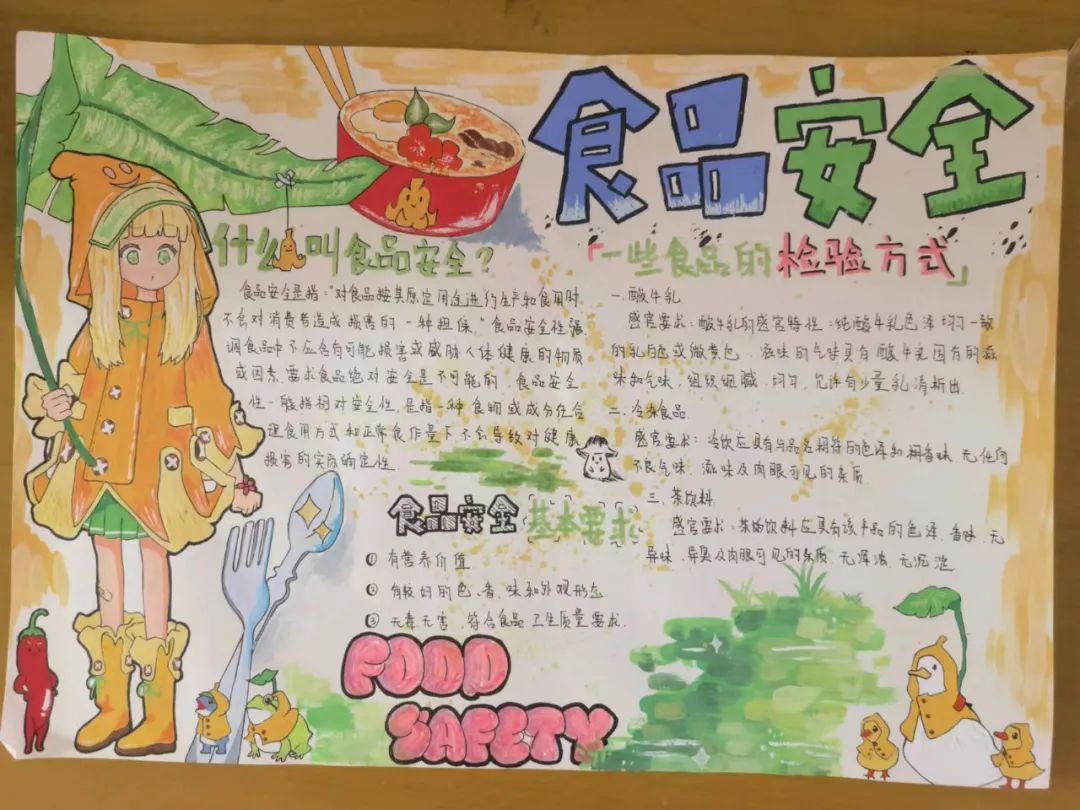 食品安全
什么叫食品安全?
食品安全是指:"对食品按其原定用途进行生产和食用时
不会对消费者造成损害的一种担保."食品安全性强
调食品中不应含有可能损害或威胁人体健康的物质
或因素,要求食品绝对安全是不可能的,食品安全
性一般指相对安全性,是指一种食物或成分在合
理食用方式和正常食作量下不会导致对健康
损害的实际确定性
食品安全基本要求
① 有营养价值
② 有较好的色、香、味和外观形态
③ 无毒无害,符合食品卫生质量要求.
FOOD
SAFETY
「一些食品的检验方式」
一.酸牛乳
感官要求:酸牛乳的感官特性:纯酸牛乳色泽均匀一致
的乳白色或微黄色,滋味的气味具有酸牛乳固有的滋
味和气味,组织细腻、均匀,允许有少量乳清析出.
二、冷冻食品
感官要求:冷饮应具有与品名相符的色泽和相香味,无任何
不良气味、滋味及肉眼可见的杂质.
三.茶饮料
感官要求:茶汤饮料应具有该产品的色泽、香味、无
异味、异臭及肉眼可见的杂质、无浑浊、无沉淀